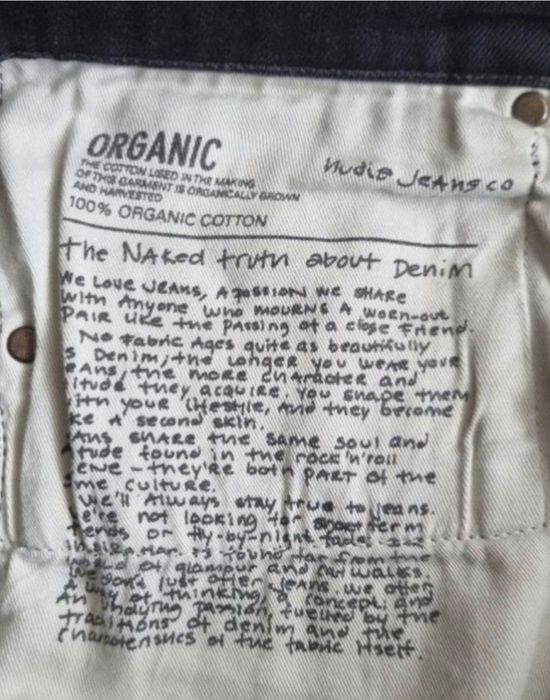 ORGANIC
THE COTTON USED IN THE MAKING
OF THIS GARMENT IS ORGANICALLY GROWN
AND HARVESTED
100% ORGANIC COTTON
Nudie Jeans co
the Naked truth about Denim
We Love Jeans, A passion we share
with Anyone who mourns A worn-out
PAIR Like the passing of a close Friend.
No Fabric Ages quite as beautifully
s Denim, the Longer you wear your
eans, the more character and
itude they acquire. You shape them
ith your Lifestyle, And they become
ke A second skin.
ans share the same soul and
tude found in the rock 'n' roll
ene – they're both PART of the
me culture.
We'll Always stay true to jeans.
e're not looking for short term
rends or fly-by-night fads
inspiration is found far from the
of glamour and catwalks.
we don't just offer jeans. we offer
A way of thinking, A concept, and
An undying passion, fuelled by the
traditions of denim and the
characteristics of the fabric itself.